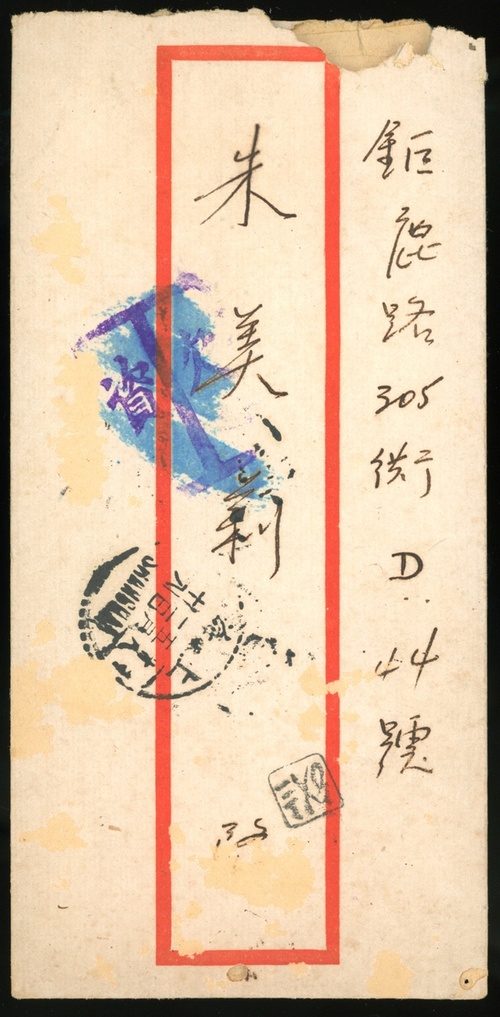 鉅鹿路305衖D.44號
朱美莉
啟
資
上海
SHANGHAI